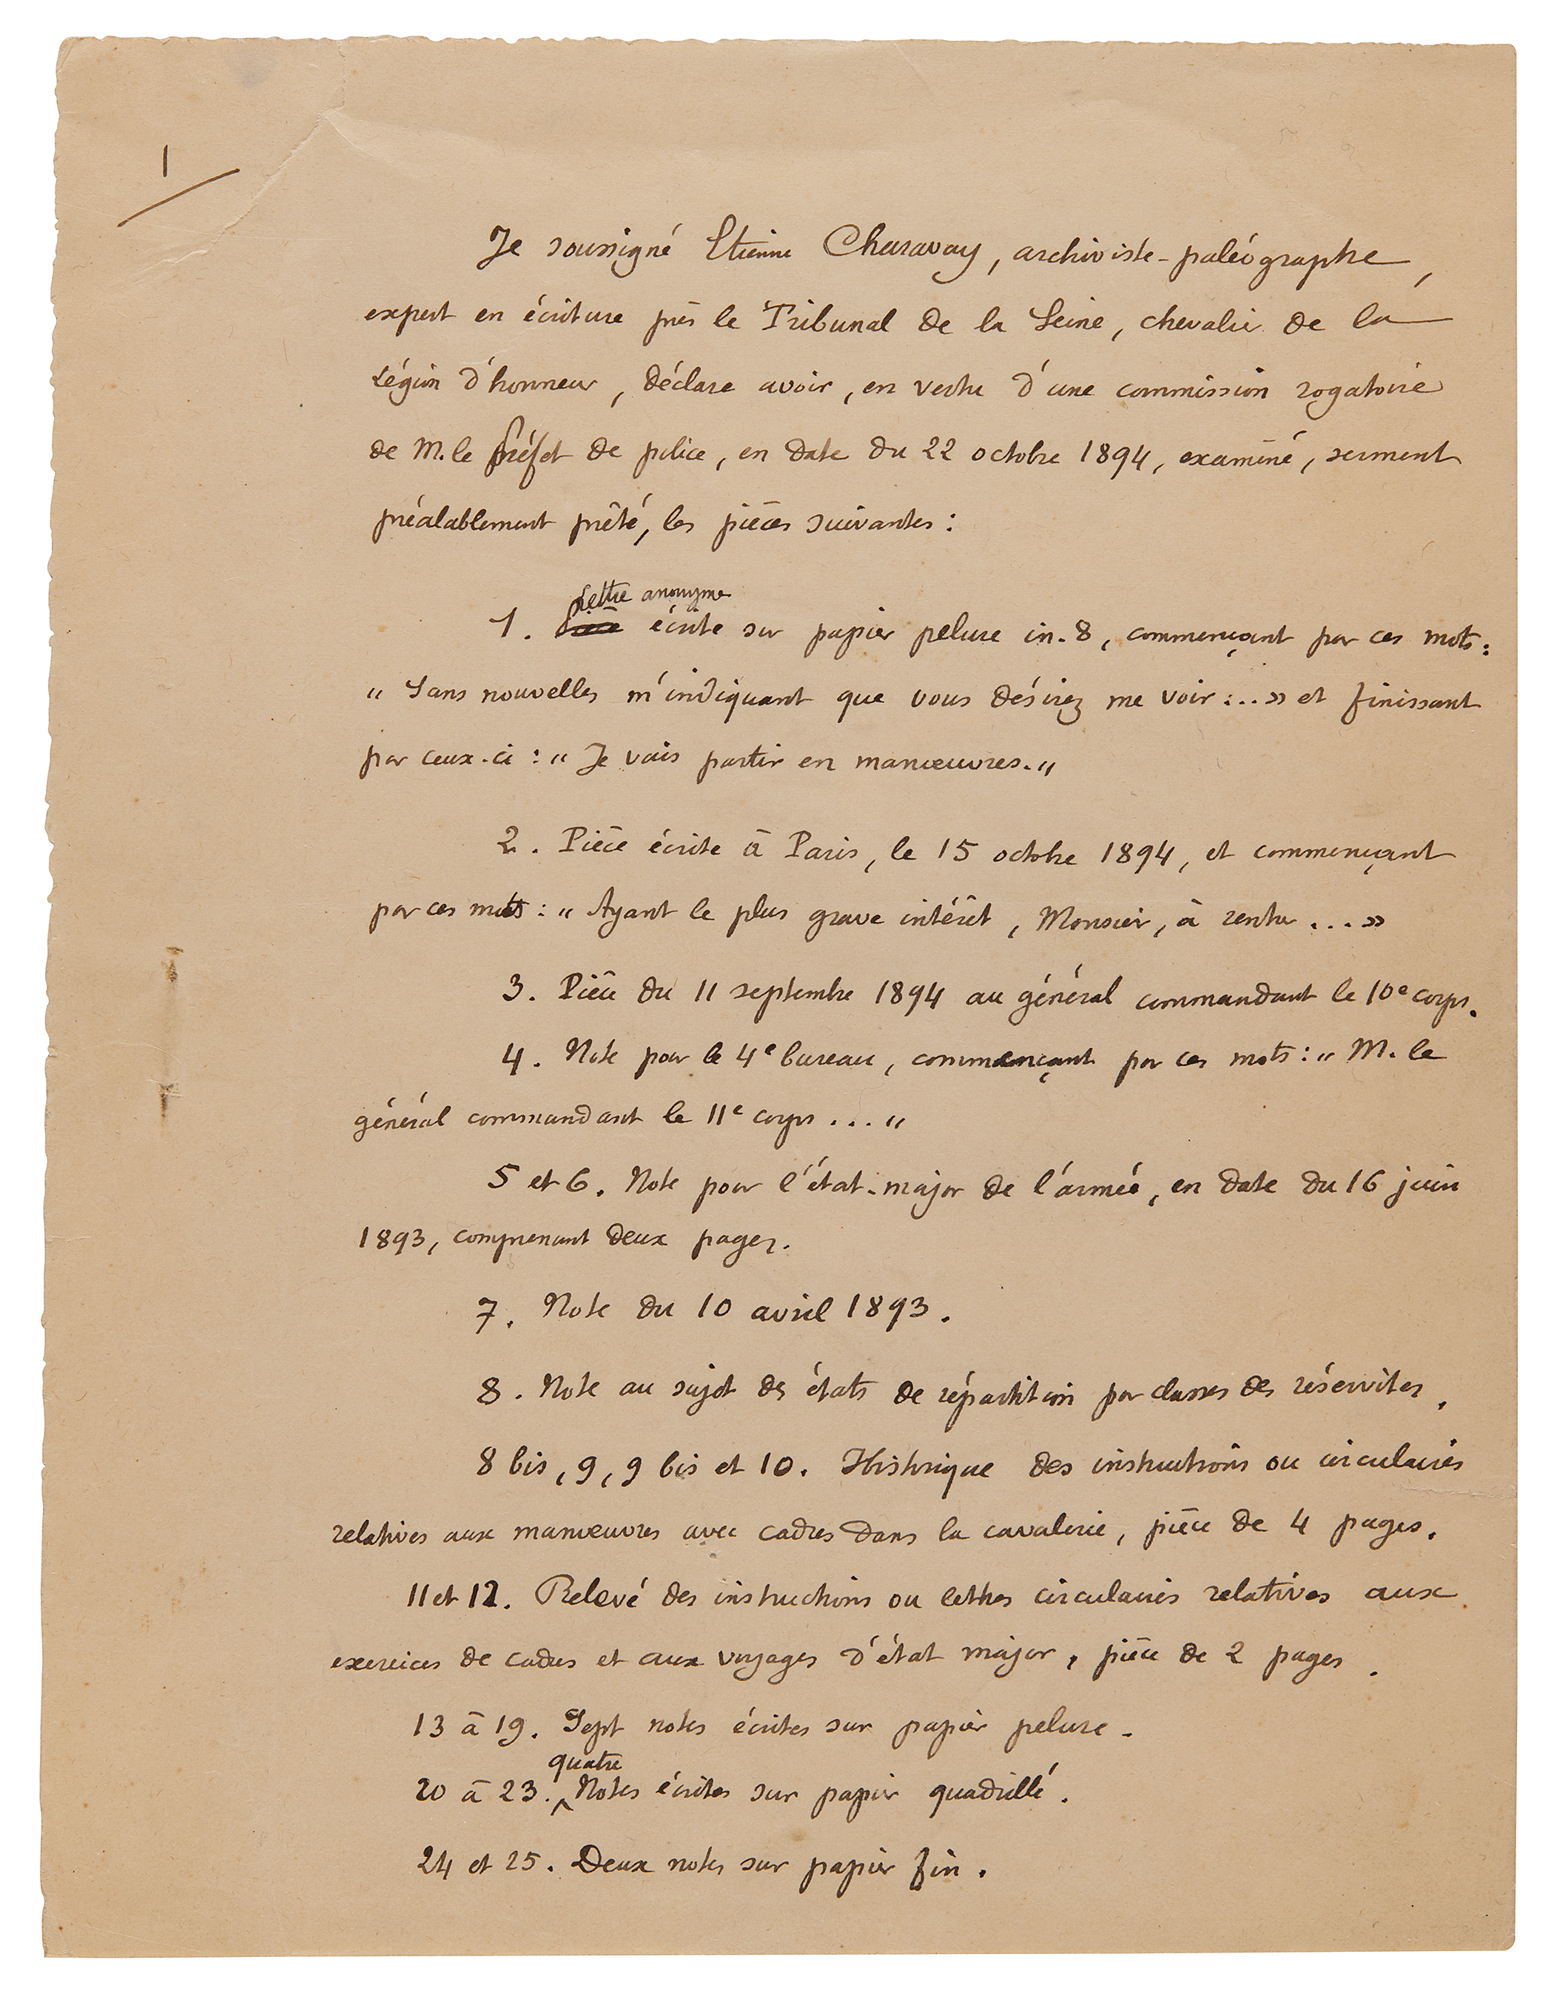 1
Je soussigné Etienne Charavay, archiviste-paléographe,
expert en écriture près le Tribunal de la Seine, chevalier de la
Légion d'honneur, déclare avoir, en vertu d'une commission rogatoire
de M. le préfet de police, en date du 22 octobre 1894, examiné, serment
préalablement prêté, les pièces suivantes :
Lettre anonyme
1. Pièce écrite sur papier pelure in-8, commençant par ces mots :
" Sans nouvelles m'indiquant que vous désirez me voir : .. » et finissant
par ceux-ci : " Je vais partir en manœuvres. "
2. Pièce écrite à Paris, le 15 octobre 1894, et commençant
par ces mots : " Ayant le plus grave intérêt, Monsieur, à rentrer ... »
3. Pièce du 11 septembre 1894 au général commandant le 10e corps.
4. Note pour le 4e bureau, commençant par ces mots : " M. le
général commandant le 11e corps ... "
5 et 6. Note pour l'état-major de l'armée, en date du 16 juin
1893, comprenant deux pages.
7. Note du 10 avril 1893.
8. Note au sujet des états de répartition par classes des réservistes.
8 bis, 9, 9 bis et 10. Historique des instructions ou circulaires
relatives aux manœuvres avec cadres dans la cavalerie, pièce de 4 pages.
11 et 12. Relevé des instructions ou lettres circulaires relatives aux
exercices de cadres et aux voyages d'état major, pièce de 2 pages.
13 à 19. Sept notes écrites sur papier pelure.
quatre
20 à 23. ^ Notes écrites sur papier quadrillé.
24 et 25. Deux notes sur papier fin.